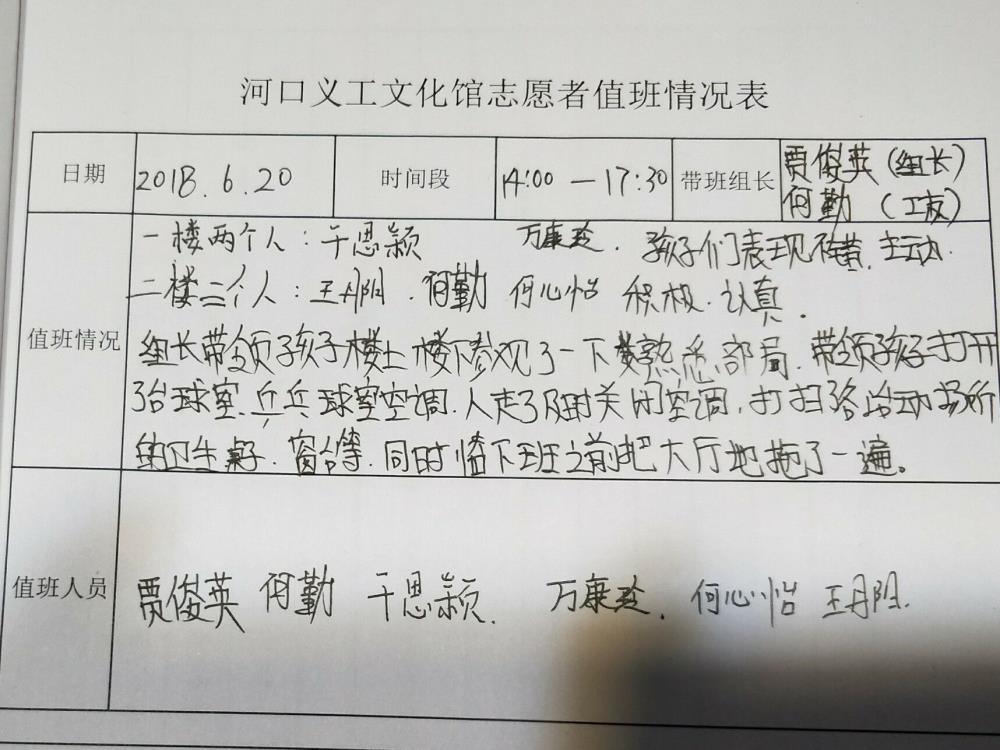 河口义工文化馆志愿者值班情况表
日期 2018.6.20 时间段 14:00—17:30 带班组长 贾俊英(组长)
何勤 (工友)
一楼两个人:干思颖 万康 . 孩子们表现 . 主动.
二楼三个人:王丹阳.何勤 何心怡 积极.认真.
值班情况
组长带领孩子楼上楼下参观了一下 熟悉部局.带领孩子打开
了台球室.乒乓球室空调.人走了及时关闭空调.打扫各活动场所
的卫生桌子.窗台等.同时 下班之前把大厅地拖了一遍。
值班人员 贾俊英 何勤 干思颖. 万康 . 何心怡 王丹阳.